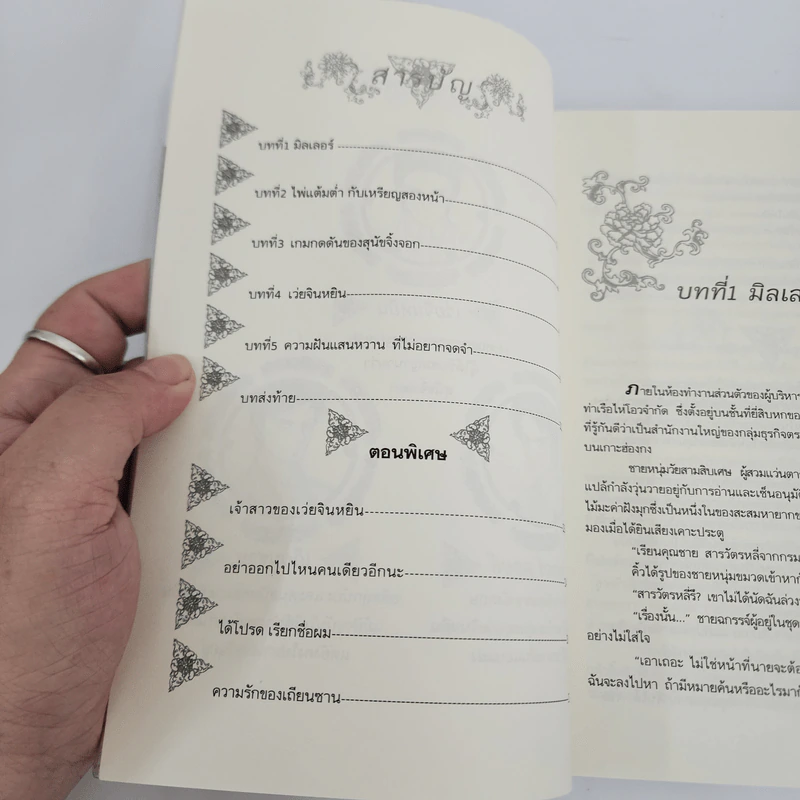 สารบัญ
บทที่1 มิลเลอร์
บทที่2 ไพ่แต้มต่ำ กับเหรียญสองหน้า
บทที่3 เกมกดดันของสุนัขจิ้งจอก
บทที่4 เว่ยจินหยิน
บทที่5 ความฝันแสนหวาน ที่ไม่อยากจดจำ
บทส่งท้าย
ตอนพิเศษ
เจ้าสาวของเว่ยจินหยิน
อย่าออกไปไหนคนเดียวอีกนะ
ได้โปรด เรียกชื่อผม
ความรักของเถียนซาน
บทที่1 มิลเล
ภายในห้องทำงานส่วนตัวของผู้บริหาร
ท่าเรือไห่โอวจำกัด ซึ่งตั้งอยู่บนชั้นที่ยี่สิบหกขอ
ที่รู้กันดีว่าเป็นสำนักงานใหญ่ของกลุ่มธุรกิจตร
บนเกาะฮ่องกง
ชายหนุ่มวัยสามสิบเศษ ผู้สวมแว่นตา
แปล้กำลังวุ่นวายอยู่กับการอ่านและเซ็นอนุมั
ไม้มะค่าฝังมุกซึ่งเป็นหนึ่งในของสะสมหายาก
มองเมื่อได้ยินเสียงเคาะประตู
"เรียนคุณชาย สารวัตรหลี่จากกรม
คิ้วได้รูปของชายหนุ่มขมวดเข้าหากั
"สารวัตรหลี่รึ? เขาไม่ได้นัดฉันล่วง
"เรื่องนั้น..." ชายฉกรรจ์ผู้อยู่ในชุด
อย่างไม่ใส่ใจ
"เอาเถอะ ไม่ใช่หน้าที่นายจะต้อ
ฉันจะลงไปหา ถ้ามีหมายค้นหรืออะไรมา